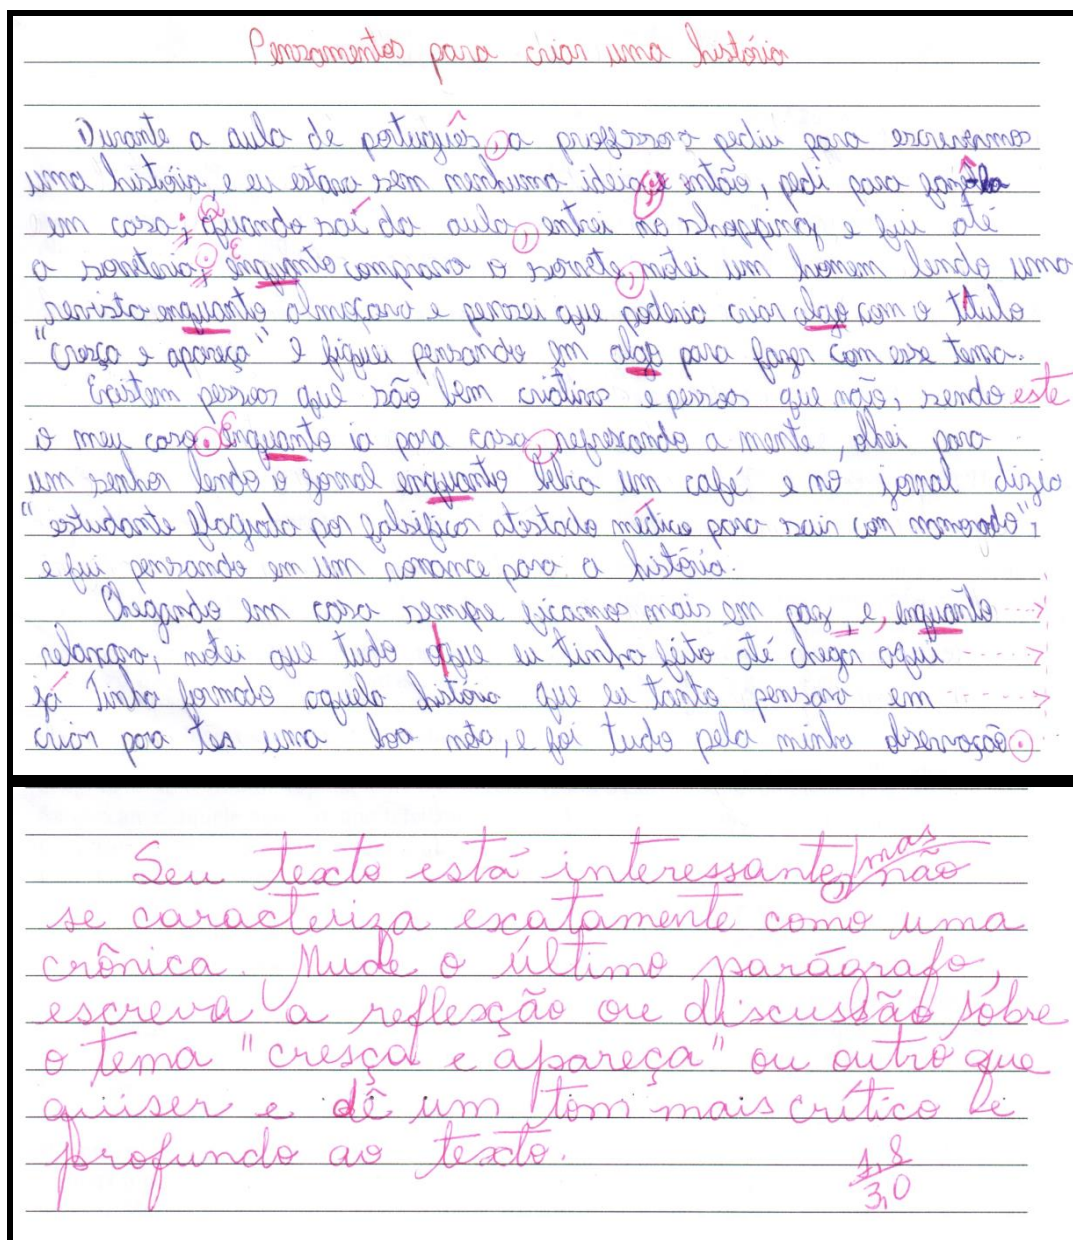 Pensamentos para criar uma história
Durante a aula de português, a professora pediu para escrevermos
uma história, e eu estava sem nenhuma ideia, e então, pedi para fazê-la
em casa; Quando saí da aula, entrei no shopping e fui até
a sorveteria. Enquanto comprava o sorvete, notei um homem lendo uma
revista enquanto almoçava e pensei que poderia criar algo com o título
"cresça e apareça" e fiquei pensando em algo para fazer com esse tema.
Existem pessoas que são bem criativas e pessoas que não, sendo este
o meu caso. Enquanto ia para casa, refrescando a mente, olhei para
um senhor lendo o jornal enquanto bebia um café e no jornal dizia
"estudante flagrada por falsificar atestado médico para sair com namorado",
e fui pensando em um romance para a história.
Chegando em casa sempre ficamos mais em paz, e, enquanto
relaxava, notei que tudo que eu tinha feito até chegar aqui
já tinha formado aquela história que eu tanto pensava em
criar para ter uma boa nota, e foi tudo pela minha observação.
Seu texto está interessante, mas não
se caracteriza exatamente como uma
crônica. Mude o último parágrafo,
escreva a reflexão ou discussão sobre
o tema "cresça e apareça" ou outro que
quiser e dê um tom mais crítico e
profundo ao texto.
1,8
3,0